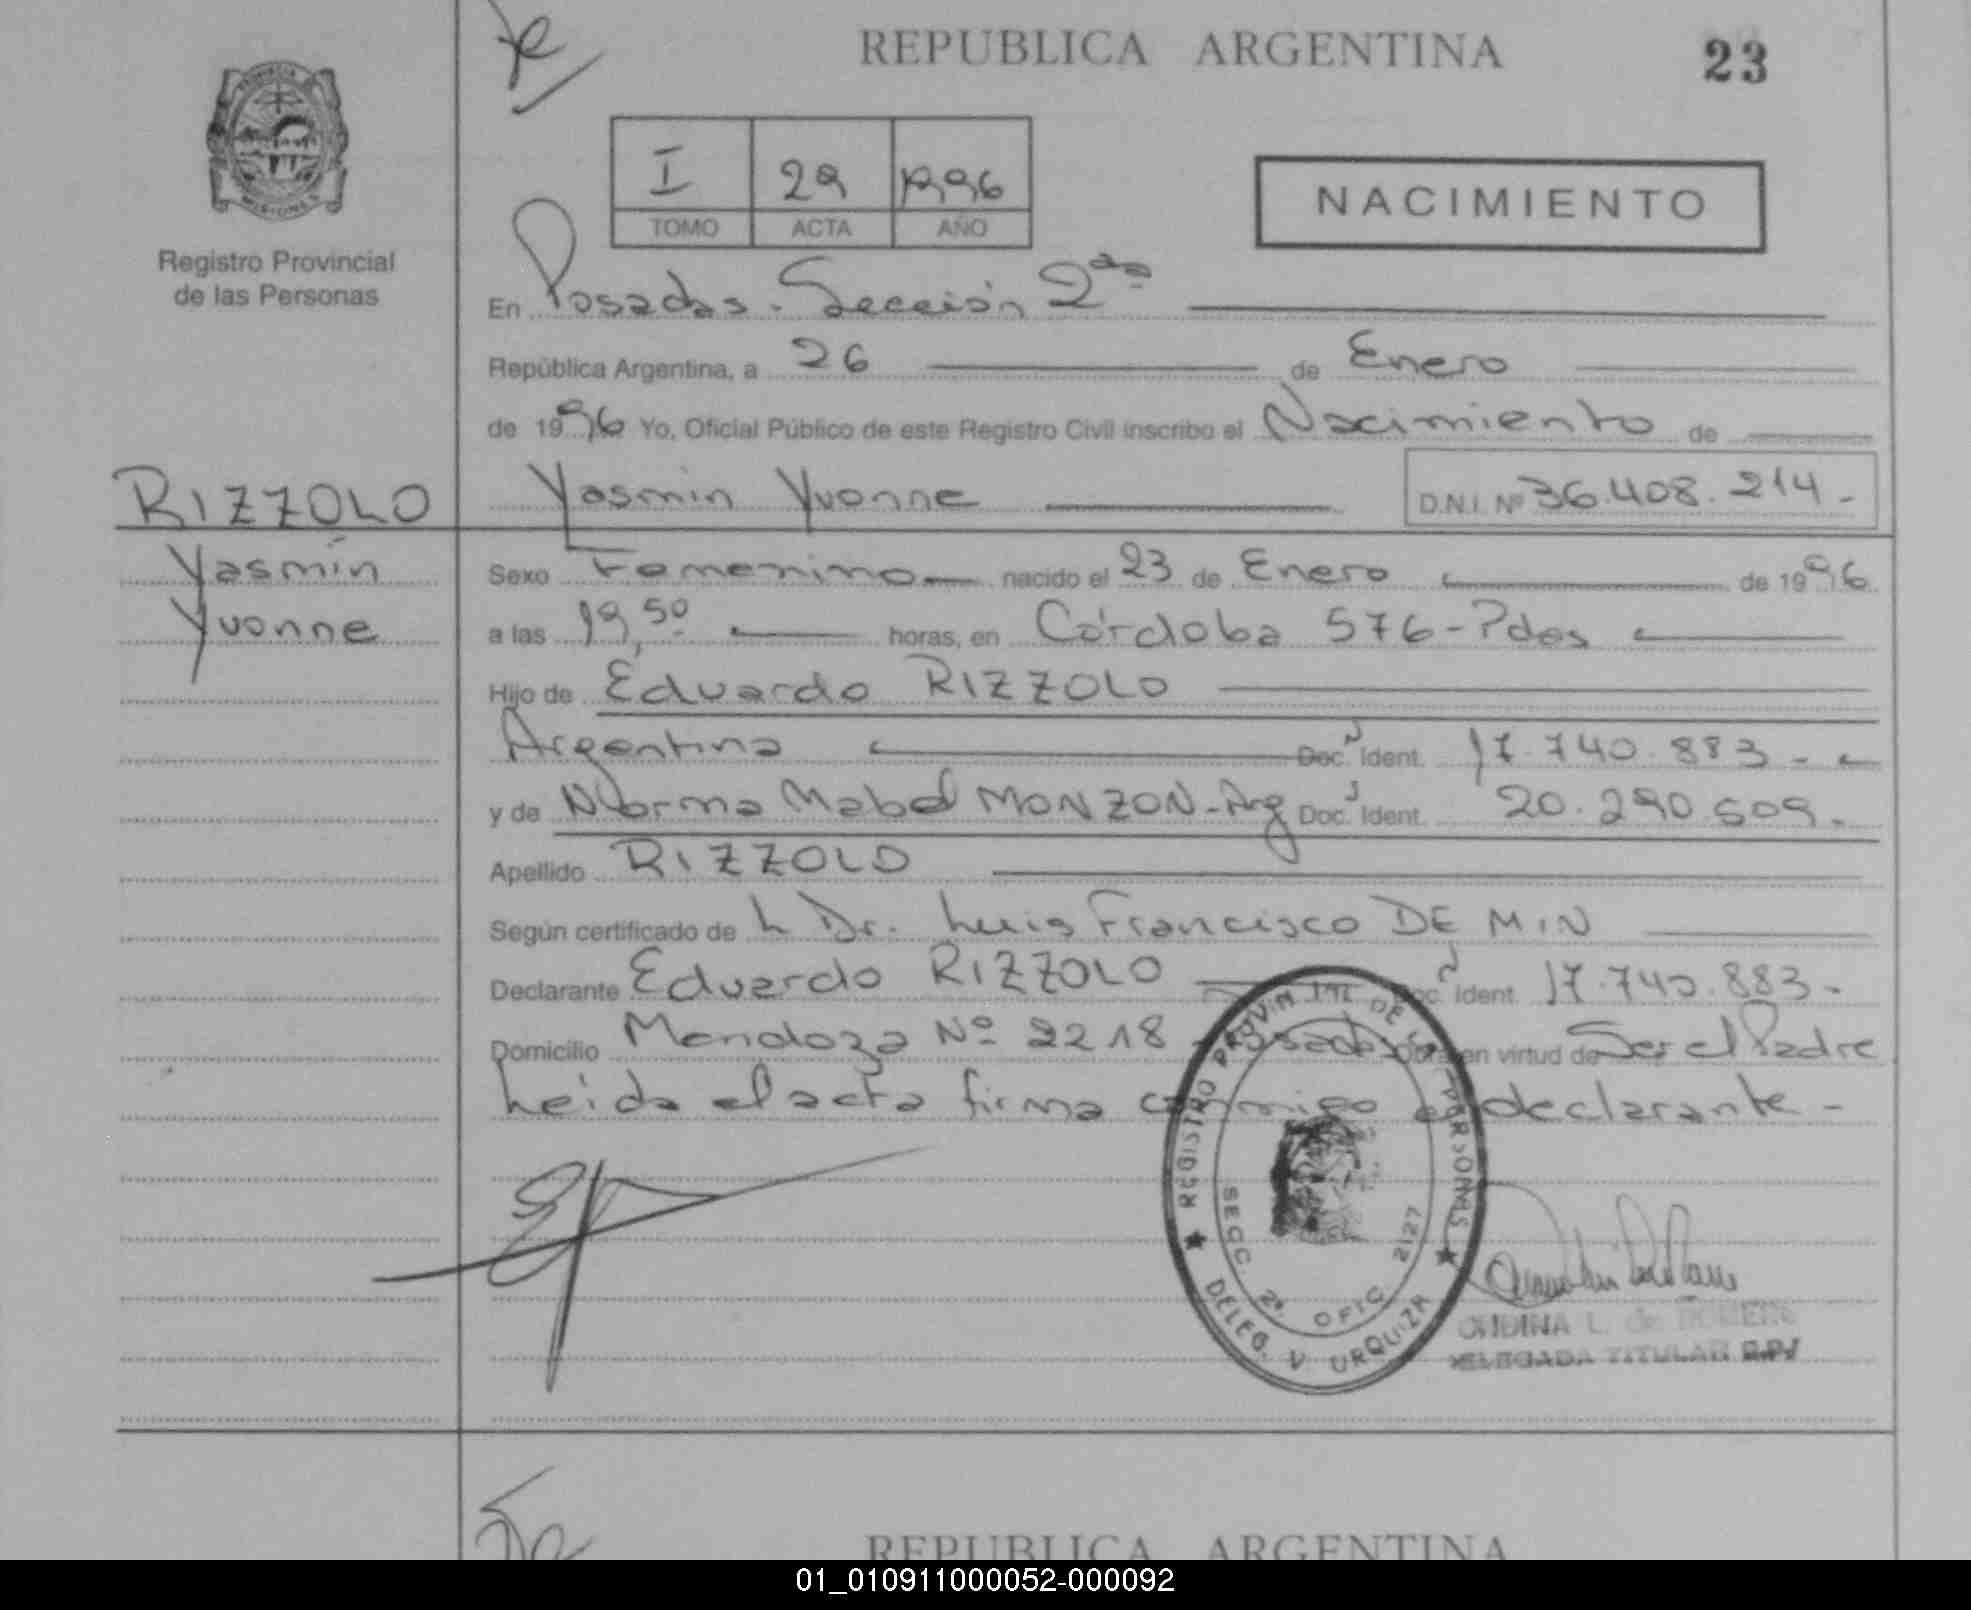 REPUBLICA ARGENTINA
23
I 29 1996
TOMO ACTA AÑO
NACIMIENTO
PROVINCIA
MISIONES
Registro Provincial
de las Personas
En Posadas - Sección 2da
República Argentina, a 26 de Enero
de 1996 Yo, Oficial Público de este Registro Civil inscribo el Nacimiento de
RIZZOLO Yasmin Yvonne D.N.I. Nº 36.408.214.-
Yasmín
Yvonne
Sexo Femenino nacido el 23 de Enero de 1996
a las 19,50 horas, en Córdoba 576 - Pdas
Hijo de Eduardo RIZZOLO
Argentina Doc. Ident. 17.740.883.-
y de Norma Mabel MONZON - Arg Doc. Ident. 20.290.509.-
Apellido RIZZOLO
Según certificado de L Dr. Luis Francisco DE MIN
Declarante Eduardo RIZZOLO Doc. Ident. 17.740.883.-
Domicilio Mendoza Nº 2218 - Posadas Obra en virtud de Ser el Padre
Leída el acta firma conmigo el declarante -
REGISTRO PROVINCIAL DE LAS PERSONAS
SECC. 2ª OFIC. 2127
DELEG. V. URQUIZA
L. de ROMERO
DELEGADA TITULAR R.P.
REPUBLICA ARGENTINA
01_010911000052-000092